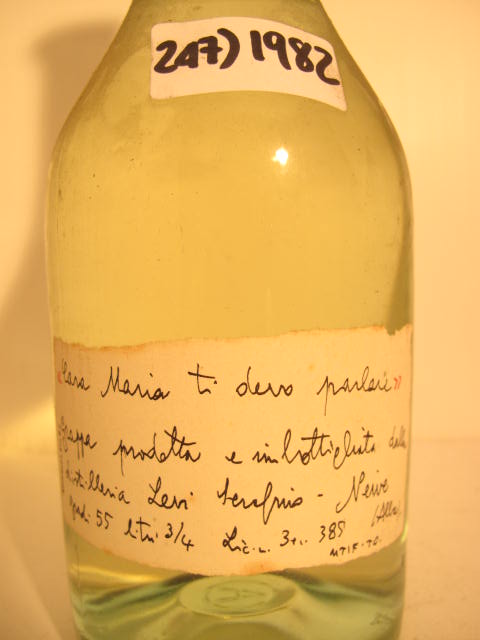 247) 1982
"Cara Maria ti devo parlare"
Grappa prodotta e imbottigliata dalla
distilleria Levi Serafino - Neive
gradi 55 litri 3/4 Lic. n. 385 (Alba)
UTIF-TO.